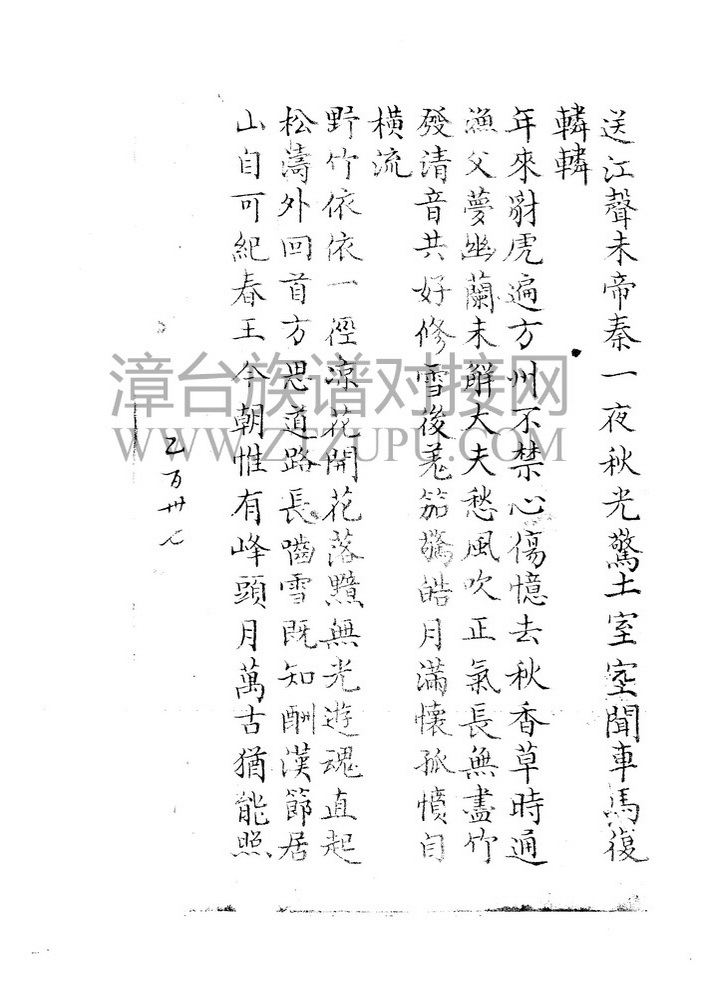 送江聲未帝秦一夜秋光驚土室空聞車馬復
轔轔
年來豺虎遍方州不禁心傷憶去秋香草時通
漁父夢幽蘭未解大夫愁風吹正氣長無盡竹
發清音共好修雪後羌笳驚皓月滿懷孤憤自
橫流
野竹依依一徑凉花開花落黯無光遊魂直起
松濤外回首方思道路長嚙雪既知酬漢節居
山自可紀春王今朝惟有峰頭月萬古猶能照
乙百卅七
漳台族谱对接网
WWW.ZTZUPU.COM